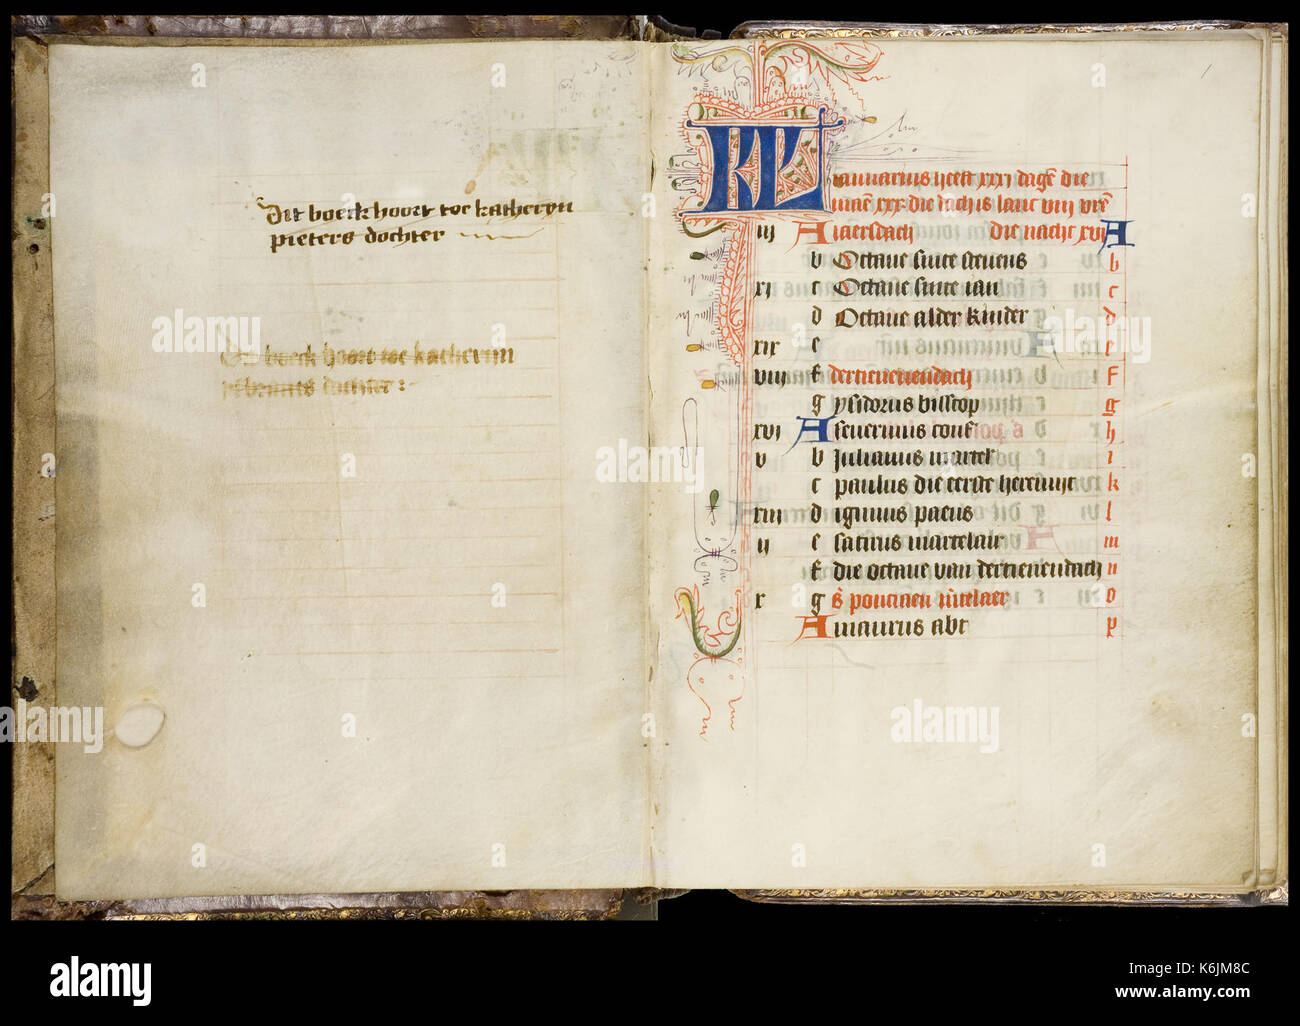 Dit boeck hoort toe katheryn
pieters dochter
Dit boeck hoort toe katheryn
dochter :
1
KL Ianuarius heeft xxxi daghē die
maē xxx die dach is lanc viij vrē
iij A iaersdach die nacht xvi A
b Octaue sinte steuens b
xi c Octaue sinte ian c
d Octaue alder kinder d
xix e e
viij f dertienendach f
g ysidorus bisscop g
xvi A seuerinus conf h
v b Julianus martel i
c paulus die eerste heremijt k
xiij d iginius paeus l
ij e satirus martelair m
f die octaue van dertienendach n
x g s poncianen mertelaer o
A maurus abt p
alamy
alamy
Image ID: K6JM8C
www.alamy.com